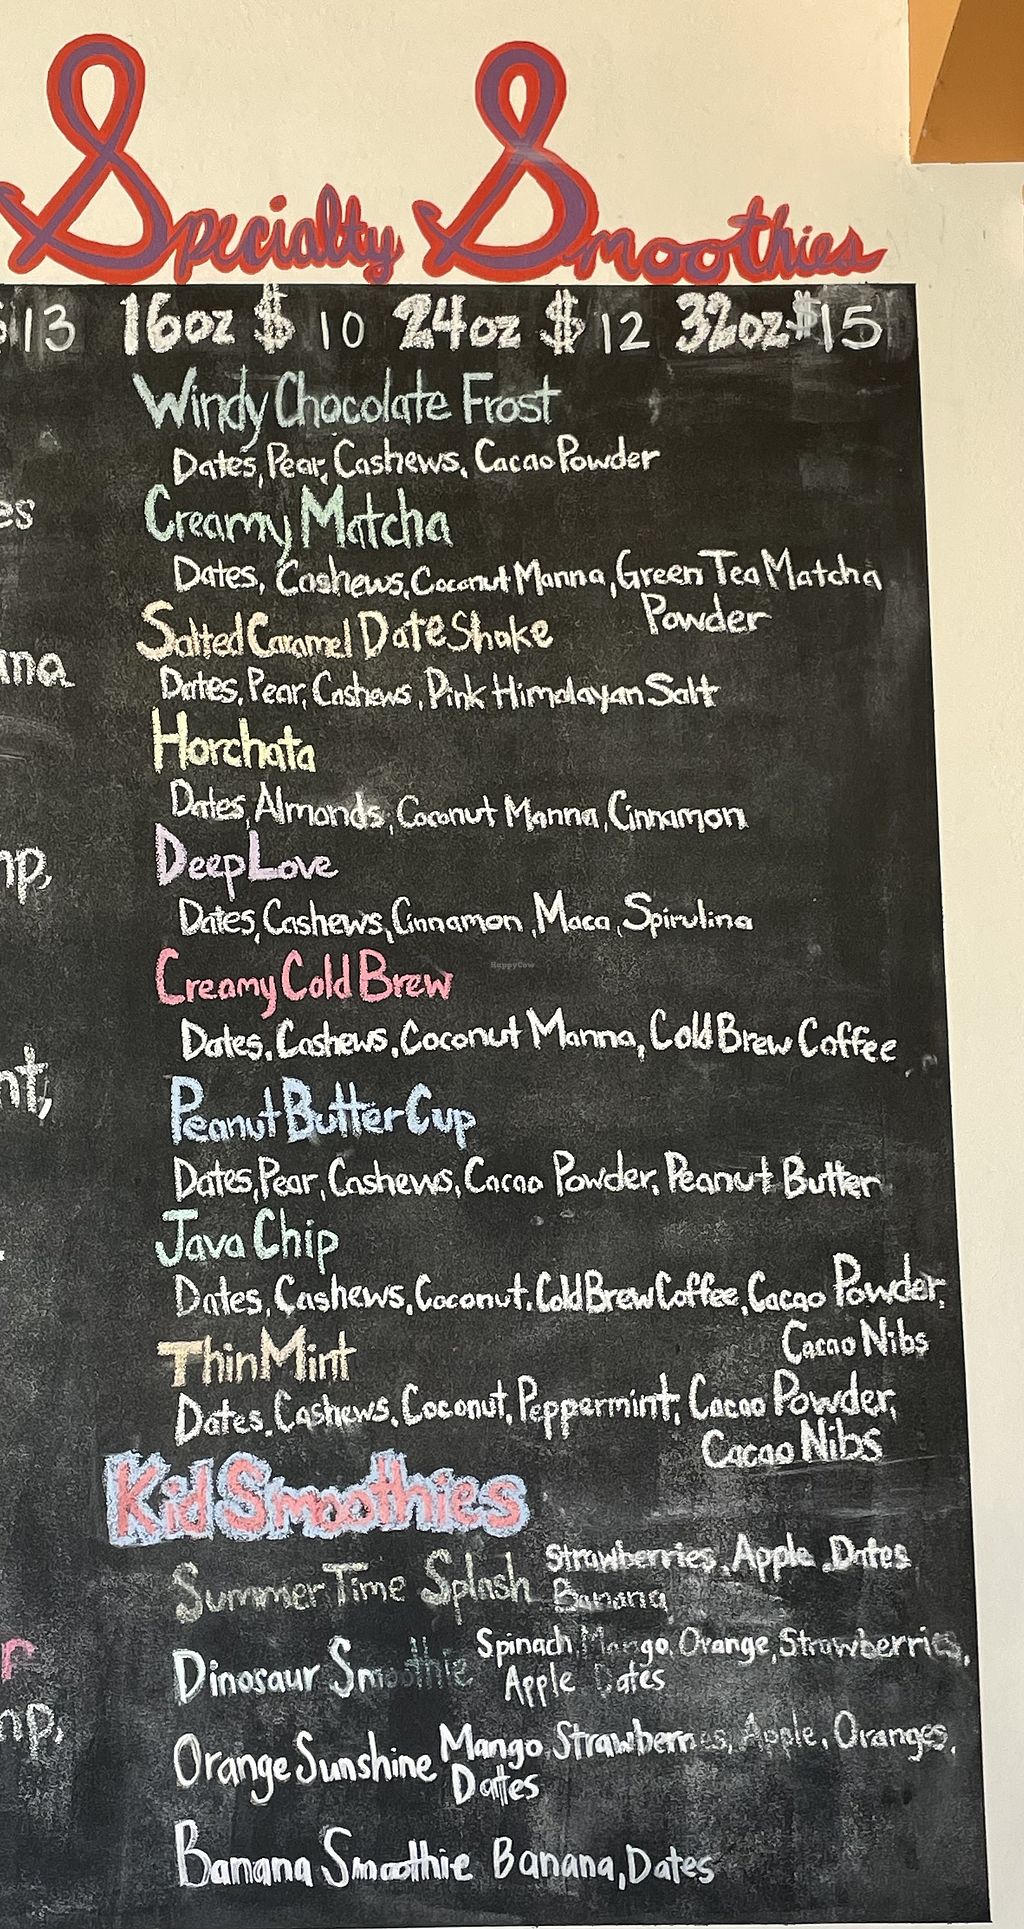 Specialty Smoothies
$13
16oz $ 10 24oz $ 12 32oz $15
Windy Chocolate Frost
Dates, Pear, Cashews, Cacao Powder
Creamy Matcha
Dates, Cashews, Coconut Manna, Green Tea Matcha
Powder
Salted Caramel Date Shake
Dates, Pear, Cashews, Pink Himalayan Salt
Horchata
Dates, Almonds, Coconut Manna, Cinnamon
Deep Love
Dates, Cashews, Cinnamon, Maca, Spirulina
HappyCow
Creamy Cold Brew
Dates, Cashews, Coconut Manna, Cold Brew Coffee
Peanut Butter Cup
Dates, Pear, Cashews, Cacao Powder, Peanut Butter
Java Chip
Dates, Cashews, Coconut, Cold Brew Coffee, Cacao Powder,
Cacao Nibs
Thin Mint
Dates, Cashews, Coconut, Peppermint, Cacao Powder,
Cacao Nibs
Kid Smoothies
Summer Time Splash Strawberries, Apple, Dates
Banana
Dinosaur Smoothie Spinach, Mango, Orange, Strawberries,
Apple Dates
Orange Sunshine Mango, Strawberries, Apple, Oranges,
Dates
Banana Smoothie Banana, Dates